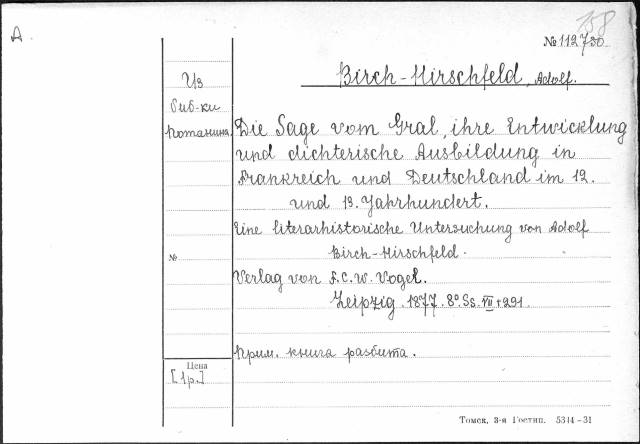 A
158
№ 112730.
Из
биб-ки
Потанина.
Birch-Hirschfeld, Adolf.
Die Sage vom Gral, ihre Entwicklung
und dichterische Ausbildung in
Frankreich und Deutschland im 12.
und 13. Jahrhundert.
Eine literarhistorische Untersuchung von Adolf
Birch-Hirschfeld.
№
Verlag von F.C.W. Vogel.
Leipzig. 1877. 8° Ss. VII + 291.
Прим. книга разбита.
Цена
[1 р.]
Томск, 3-я Гостип. 5344-31